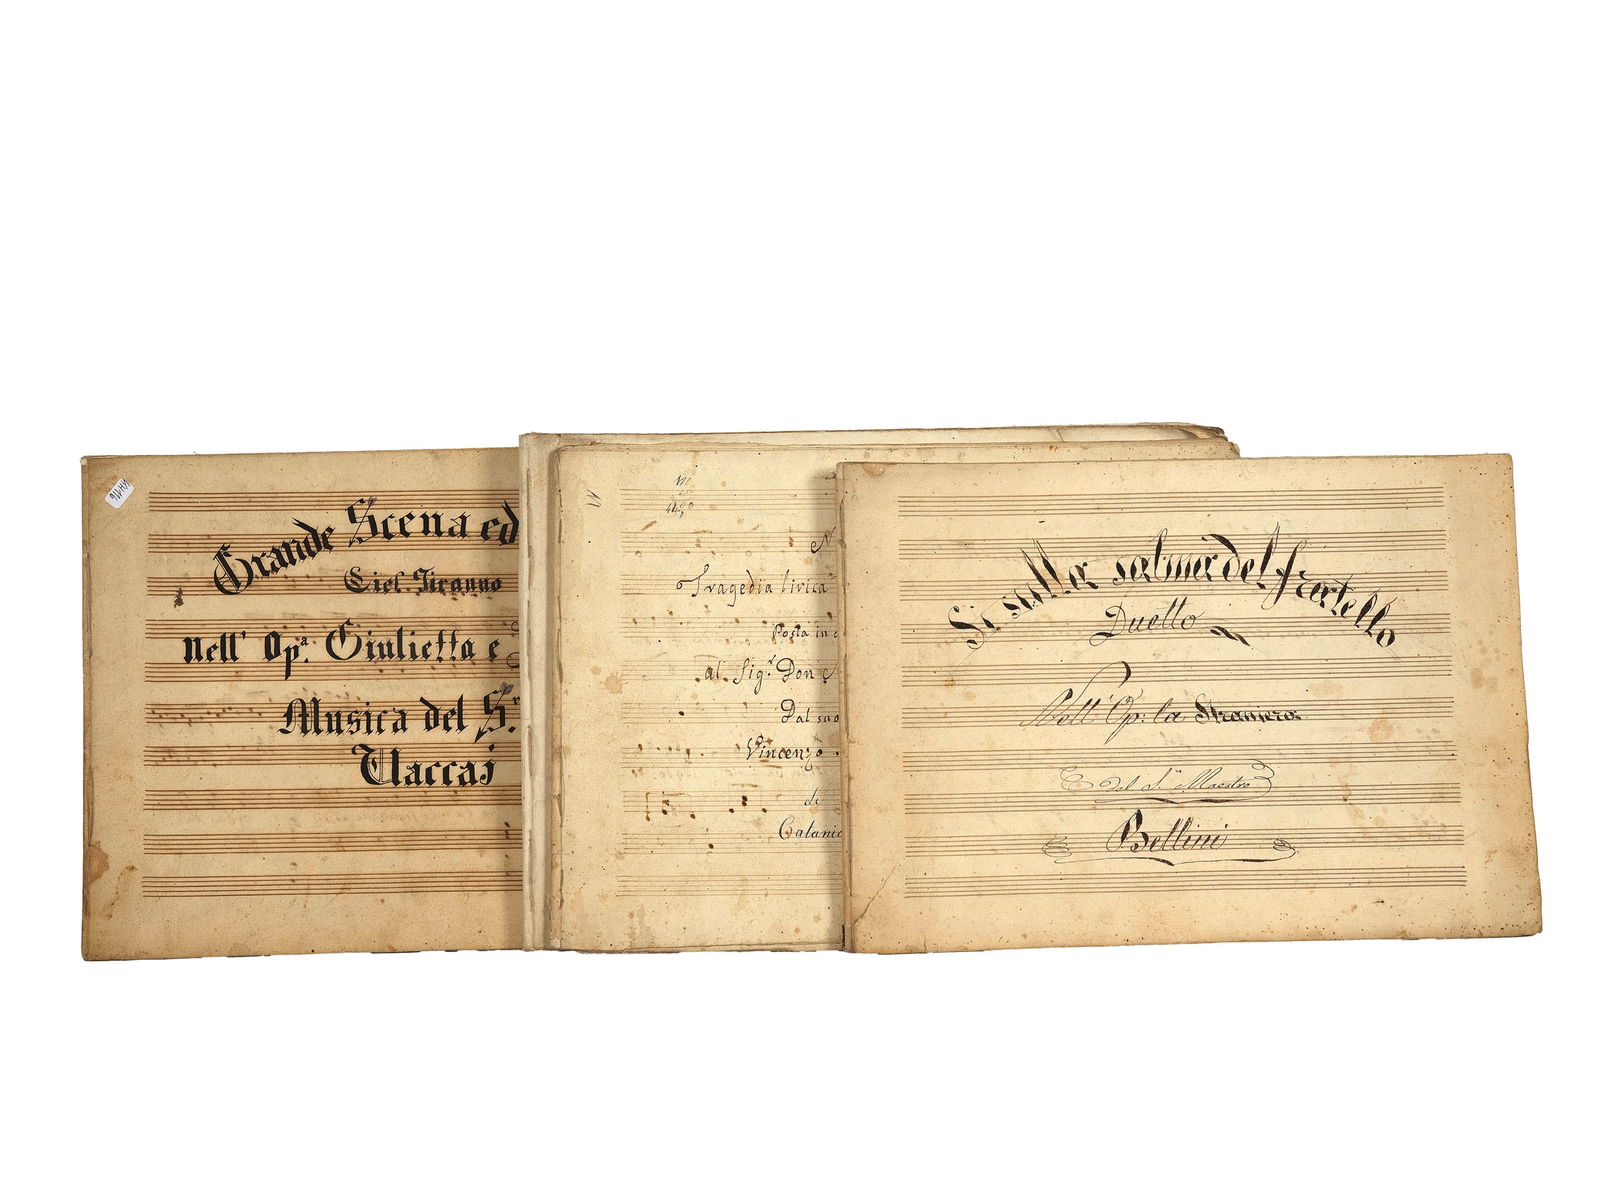 Grande Scena ed
Ciel Tiranno
nell' Op.ª Giulietta e
Musica del S.r
Vaccaj
N
Tragedia lirica
Posta in
al Sig.r Don
Dal suo
Vincenzo
di
Catania
Si sulla salma del fratello
Duetto
Nell' Op: la Straniera
Del S.r Maestro
Bellini